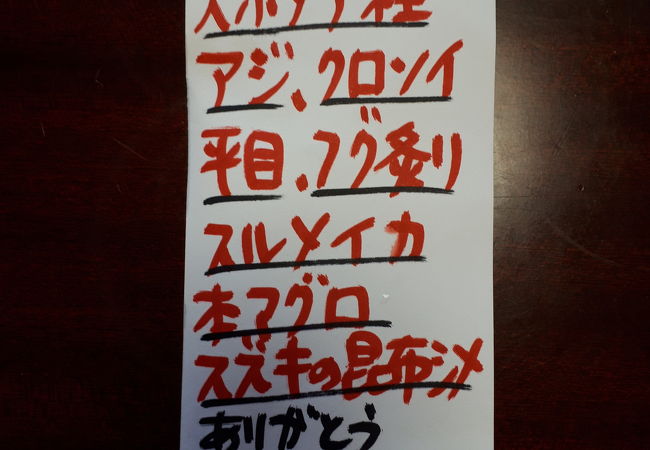 アジ、クロソイ
平目、フグ炙り
スルメイカ
本マグロ
スズキの昆布シメ
ありがとう